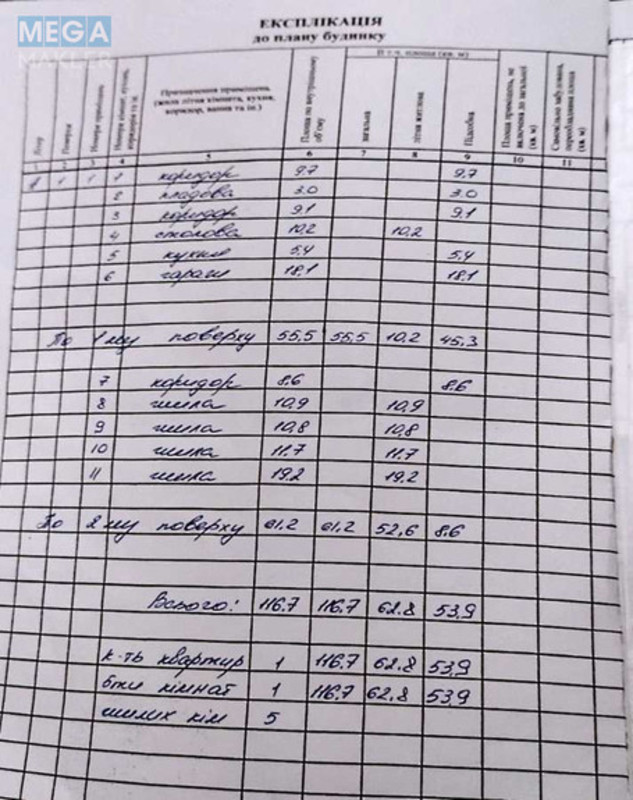 MEGA
МАКЛЕР
ЕКСПЛІКАЦІЯ
до плану будинку
Літер
Поверхи
Номери приміщень
Номери кімнат, кухонь, коридорів та ін.
Призначення приміщень (жила літня кімната, кухня, коридор, ванна та ін.)
Площа по внутрішньому об'єму
В т.ч. площа (кв. м)
загальна
літня житлова
Підсобна
Площа приміщень, не включена до загальної (кв. м)
Самовільно забудована, переобладнана площа (кв. м)
1 2 3 4 5 6 7 8 9 10 11
1 1 1 коридор 9.7 9.7
2 кладова 3.0 3.0
3 коридор 9.1 9.1
4 столова 10,2 10,2
5 кухня 5,4 5,4
6 гараж 18,1 18,1
По 1 му поверху 55,5 55,5 10,2 45,3
7 коридор 8.6 8.6
8 жила 10,9 10,9
9 жила 10,8 10,8
10 жила 11.7 11.7
11 жила 19.2 19.2
По 2 му поверху 61,2 61,2 52,6 8.6
Всього: 116.7 116.7 62.8 53,9
к-ть квартир 1 116.7 62.8 53,9
бти кімнат 1 116.7 62.8 53,9
жилих кім 5